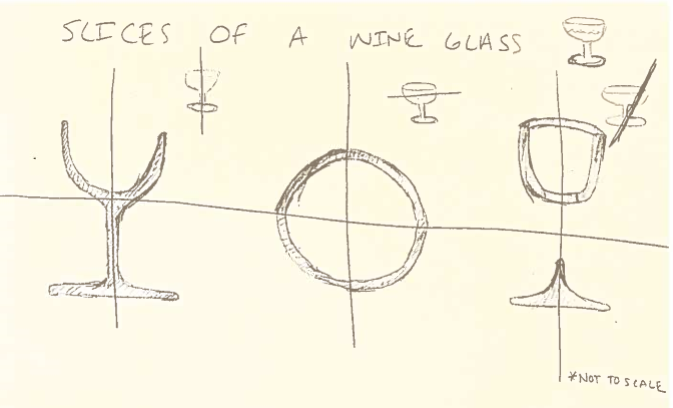 SLICES OF A WINE GLASS
*NOT TO SCALE